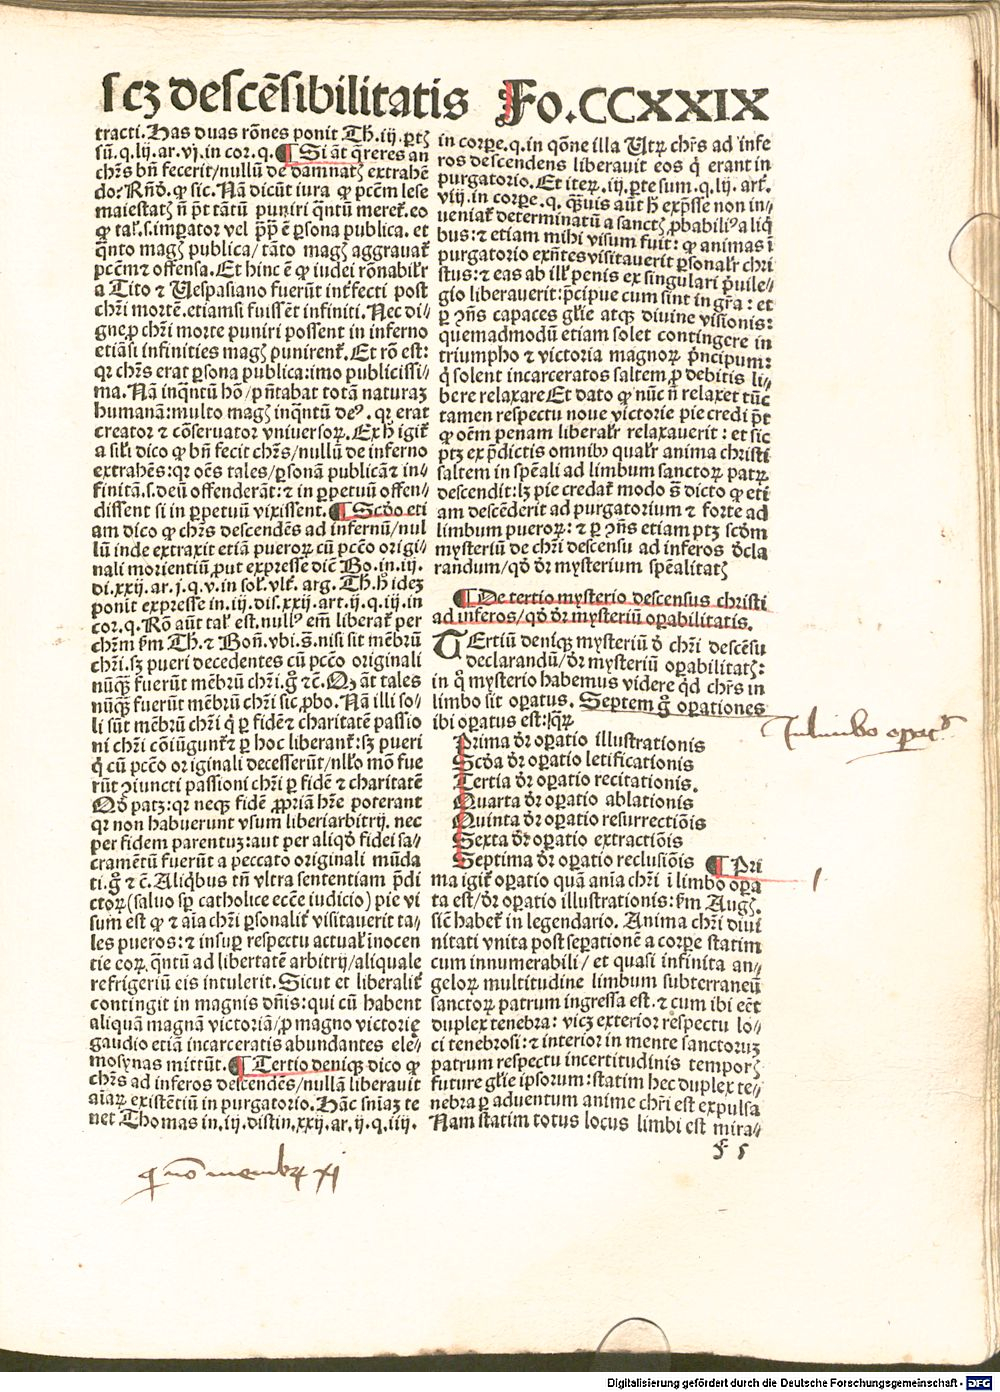 scꝫ descēsibilitatis Fo.CCXXIX
tracti. Has duas rōnes ponit Th. iij. ꝑtꝫ
sū. q. lij. ar. vj. in cor. q. ¶ Si āt q̄reres an
chr̄s bn̄ fecerit/nullū de damnatꝫ extrahē
do: Rn̄d. ꝙ sic. Nā dicūt iura ꝙ pctm lese
maiestatꝫ n̄ pt̄ tātū puniri q̄ntū meret᷑. eo
ꝙ tal᷑. s. imꝑator vel pp̄ ē ꝑsona publica. et
q̄nto magꝫ publica/ tāto magꝫ aggrauat᷑
pctm̄ ⁊ offensa. Et hinc ē ꝙ iudei rōnabilr̄
a Tito ⁊ Vespasiano fuerūt int᷑fecti post
chr̄i mortē. etiamsi fuissēt infiniti. Nec di-
gne ꝓ chr̄i morte puniri possent in inferno
etiāsi infinities magꝫ punirent᷑. Et rō est:
qꝛ chr̄s erat ꝑsona publica: imo publicissi-
ma. Nā inq̄ntū hō/ pn̄tabat totā naturaꝫ
humanā: multo magꝫ inq̄ntū deꝰ. qꝛ erat
creator ⁊ cōseruator vniuersoꝝ. Ex h̄ igit᷑
a sil᷑i dico ꝙ bn̄ fecit chr̄s/ nullū de inferno
extrahēs: qꝛ oēs tales/ ꝑsonā publicā ⁊ in-
finitā. s. deū offenderāt: ⁊ in ꝑpetuū offen-
dissent si in ꝑpetuū vixissent. ¶ Scd̄o eti
am dico ꝙ chr̄s descendēs ad infernū/ nul
lū inde extraxit etiā pueroꝝ cū pctō origi-
nali morientiū ꝓut expresse dic̄ Bo. in. iij.
di. xxij. ar. j. q. v. in sol᷑. vlt᷑. arg. Th. h̄ ideꝫ
ponit expresse in. iij. dis. xxij. art. ij. q. iij. in
cor. q. Rō aūt tal᷑ est. nullꝰ em̄ liberat᷑ per
chr̄m ẜm Th. ⁊ Bon̄. vbi. s. nisi sit mēbrū
chr̄i. sꝫ pueri decedentes cū pctō originali
nūq̄ꝫ fuerūt mēbrū chr̄i. g̊ ⁊c̄. Ꝙ āt tales
nūq̄ꝫ fuerūt mēbrū chr̄i sic ꝓbo. Nā illi so-
li sūt mēbrū chr̄i q̄ ꝑ fidē ⁊ charitatē passio
ni chr̄i cōiūgunt᷑ ⁊ ꝑ hoc liberant᷑: sꝫ pueri
q̄ cū pctō originali decesserūt/ nl̄lo mō fue
rūt ꝯiuncti passioni chr̄i ꝑ fidē ⁊ charitatē
Qd̄ patꝫ: qꝛ neqꝫ fidē ꝓpriā hr̄e poterant
qꝛ non habuerunt vsum liberiarbitrij. nec
per fidem parentuꝫ: aut per aliqd̄ fidei sa-
cramētū fuerūt a peccato originali mūda
ti. g̊ ⁊ c̄. Aliqbus tn̄ vltra sententiam p̄di
ctoꝝ (saluo sp̄ catholice ecc̄e iudicio) pie vi
sum est ꝙ ⁊ aīa chr̄i ꝑsonalit᷑ visitauerit ta-
les pueros: ⁊ insuꝑ respectu actual᷑ inocen
tie eoꝝ. q̄ntū ad libertatē arbitrij/ aliquale
refrigeriū eis intulerit. Sicut et liberalit᷑
contingit in magnis dn̄is: qui cū habent
aliquā magnā victoriā/ ꝓ magno victorię
gaudio etiā incarceratis abundantes ele-
mosynas mittūt. ¶ Tertio deniqꝫ dico ꝙ
chr̄s ad inferos descendēs/ nullā liberauit
aīaꝝ existētiū in purgatorio. Hāc sn̄iaꝫ te
net Thomas in. iij. distin. xxij. ar. ij. q. iiij.
in corꝑe. q. in qōne illa Vtꝝ chr̄s ad infe
ros descendens liberauit eos q̄ erant in
purgatorio. Et iteꝝ. iij. ꝑte sum. q. lij. art᷑.
viij. in corꝑe. q. q̄ꝫuis aūt h̄ exp̄sse non in-
ueniat᷑ determinatū a sanctꝫ ꝓbabiliꝰ a liq̄
bus: ⁊ etiam mihi visum fuit: ꝙ animas ī
purgatorio exn̄tes visitauerit ꝑsonalr̄ chri
stus: ⁊ eas ab ill᷑ penis ex singulari p̄uile-
gio liberauerit: p̄cipue cum sint in gr̄a: et
ꝑ ꝯn̄s capaces gl̄ie atqꝫ diuine visionis:
quemadmodū etiam solet contingere in
triumpho ⁊ victoria magnoꝝ p̄ncipum:
q̄ solent incarceratos saltem ꝓ debitis li-
bere relaxare Et dato ꝙ nūc n̄ relaxet tūc
tamen respectu noue victorie pie credi pt̄
ꝙ oēm penam liberalr̄ relaxauerit: et sic
ptꝫ ex p̄dictis omnibꝰ qualr̄ anima christi
saltem in spēali ad limbum sanctoꝝ patꝝ
descendit: lꝫ pie credat᷑ modo s̄ dicto ꝙ eti
am descēderit ad purgatorium ⁊ forte ad
limbum pueroꝝ: ⁊ ꝑ ꝯn̄s etiam ptꝫ scd̄m
mysteriū de chr̄i descensu ad inferos d̄cla
randum/ qd̄ dr̄ mysterium spēalitatꝫ
¶ De tertio mysterio descensus christi
ad inferos/ qd̄ dr̄ mysteriū oꝑabilitatis.
TErtiū deniqꝫ mysteriū d̄ chr̄i descēsu
declarandū/ dr̄ mysteriū oꝑabilitatꝫ:
in q̊ mysterio habemus videre qd̄ chr̄s in
limbo sit oꝑatus. Septem g̊ oꝑationes
ibi oꝑatus est: qꝝ
Prima dr̄ oꝑatio illustrationis
Scd̄a dr̄ oꝑatio letificationis
Tertia dr̄ oꝑatio recitationis.
Quarta dr̄ oꝑatio ablationis
Quinta dr̄ oꝑatio resurrectiōis
Sexta dr̄ oꝑatio extractiōis
Septima dr̄ oꝑatio reclusiōis ¶ Pri
ma igit᷑ oꝑatio quā aīa chr̄i ī limbo oꝑa
ta est/ dr̄ oꝑatio illustrationis: ẜm Augꝫ.
sic̄ habet᷑ in legendario. Anima chr̄i diui
nitati vnita post seꝑationē a corꝑe statim
cum innumerabili/ et quasi infinita an-
geloꝝ multitudine limbum subterraneū
sanctoꝝ patrum ingressa est. ⁊ cum ibi eēt
duplex tenebra: vicꝫ exterior respectu lo-
ci tenebrosi: ⁊ interior in mente sanctoruꝫ
patrum respectu incertitudinis temporꝫ
future gl̄ie ipsorum: statim hec duplex te-
nebra ꝑ aduentum anime chr̄i est expulsa
Nam statim totus locus limbi est mira-
F 5
In limbo operatꝰ
1
Digitalisierung gefördert durch die Deutsche Forschungsgemeinschaft - DFG